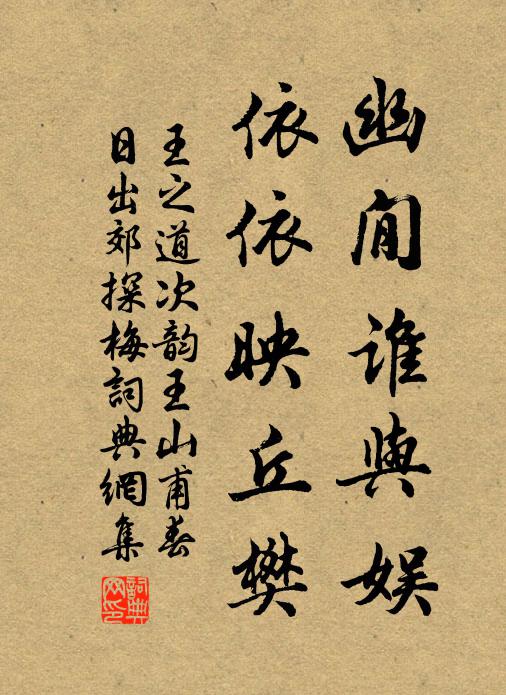 幽閒誰與娛
依依映丘樊
王之道次韵王山甫春
日出郊探梅詞典網集
詞典網印